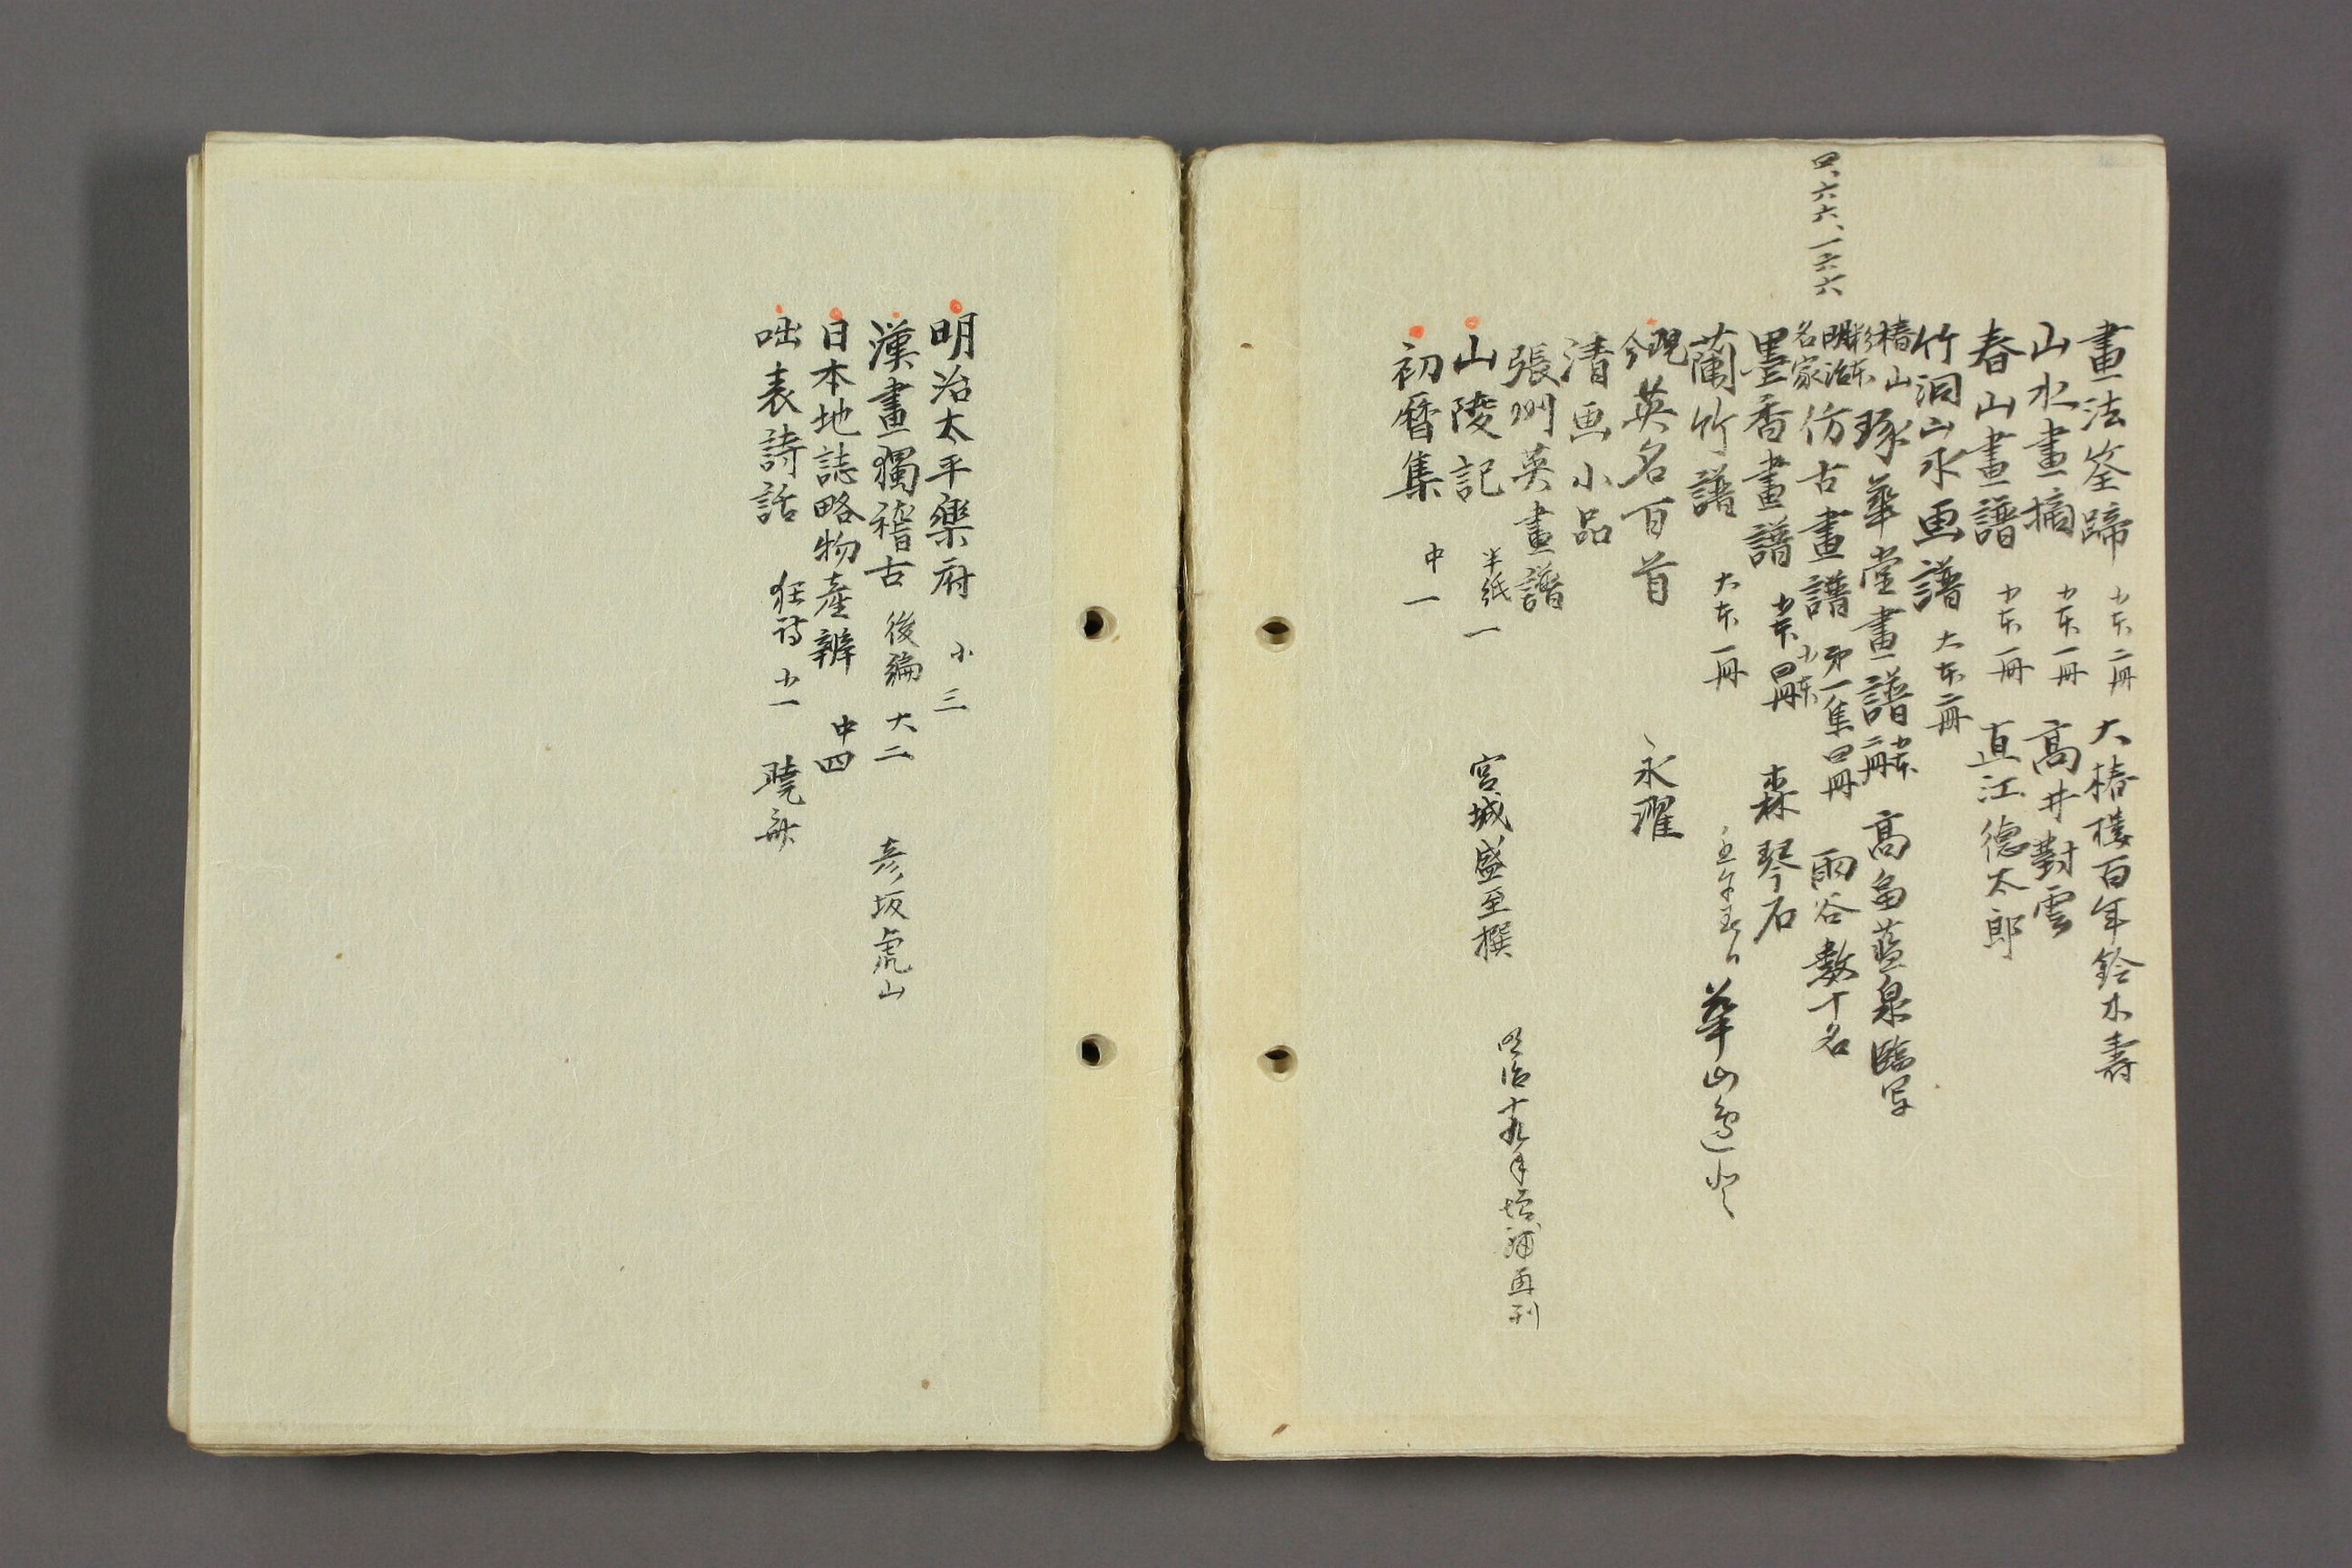 畫法筌蹄 小本二冊 大椿樓百年鈴木壽
山水畫摘 小本一冊 高井對雲
春山畫譜 小本一冊 直江德太郎
竹洞山水画譜 大本二冊
椿山 琢華堂畫譜 小本二冊 高畠藍泉臨写
四、六六、一六六
明治名家 仿古畫譜 第一集四冊 小本 雨谷 數十名
墨香畫譜 小本四冊 森琴石
蘭竹譜 大本一冊 華山邉登
現今英名百首 永濯
清画小品
張州英畫譜
山陵記 半紙一 宮城盛至撰 明治十九年增補再刊
初曆集 中一
明治太平樂府 小三
漢畫獨稽古 後編 大二 彦坂虎山
日本地誌略物產辨 中四
咄表詩話 狂詩 小一 曉齋